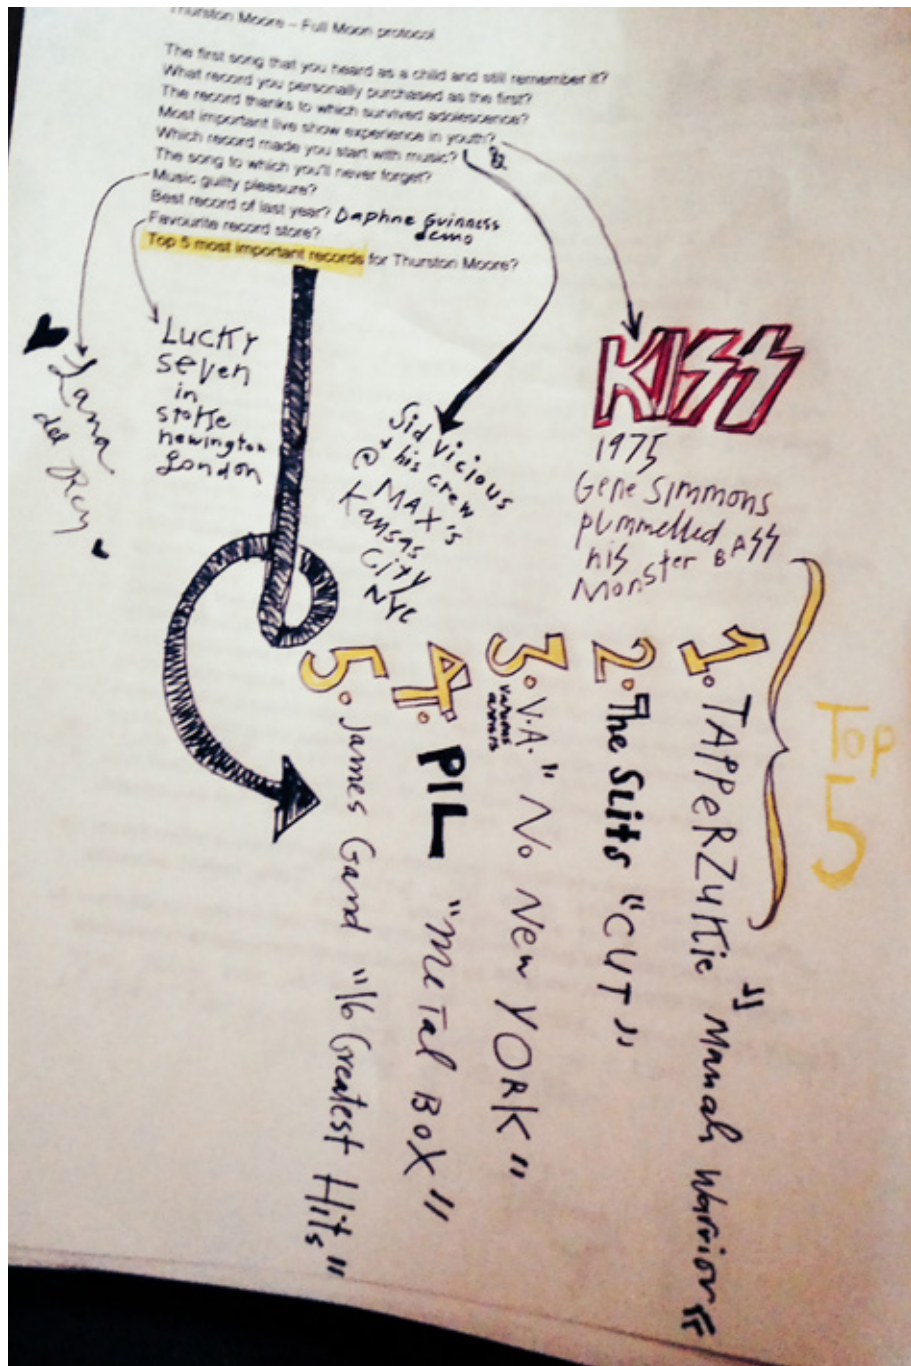 Thurston Moore – Full Moon protocol
The first song that you heard as a child and still remember it?
What record you personally purchased as the first?
The record thanks to which survived adolescence?
Most important live show experience in youth?
Which record made you start with music?
The song to which you'll never forget?
Music guilty pleasure?
Best record of last year? Daphne Guinness
demo
Favourite record store?
Top 5 most important records for Thurston Moore?
Lana
del Rey
Lucky
seven
in
stoke
newington
London
Sid Vicious
+ his crew
@ MAX's
Kansas
City
NYC
KISS
1975
Gene Simmons
pummelled
his
Monster BASS
Top
5
1. TAPPERZUKIE "Manah Warrior"
2. The Slits "CUT"
3. V.A. "No New YORK"
various
artists
4. PIL "METal BOX"
5. James Gand "16 Greatest Hits"